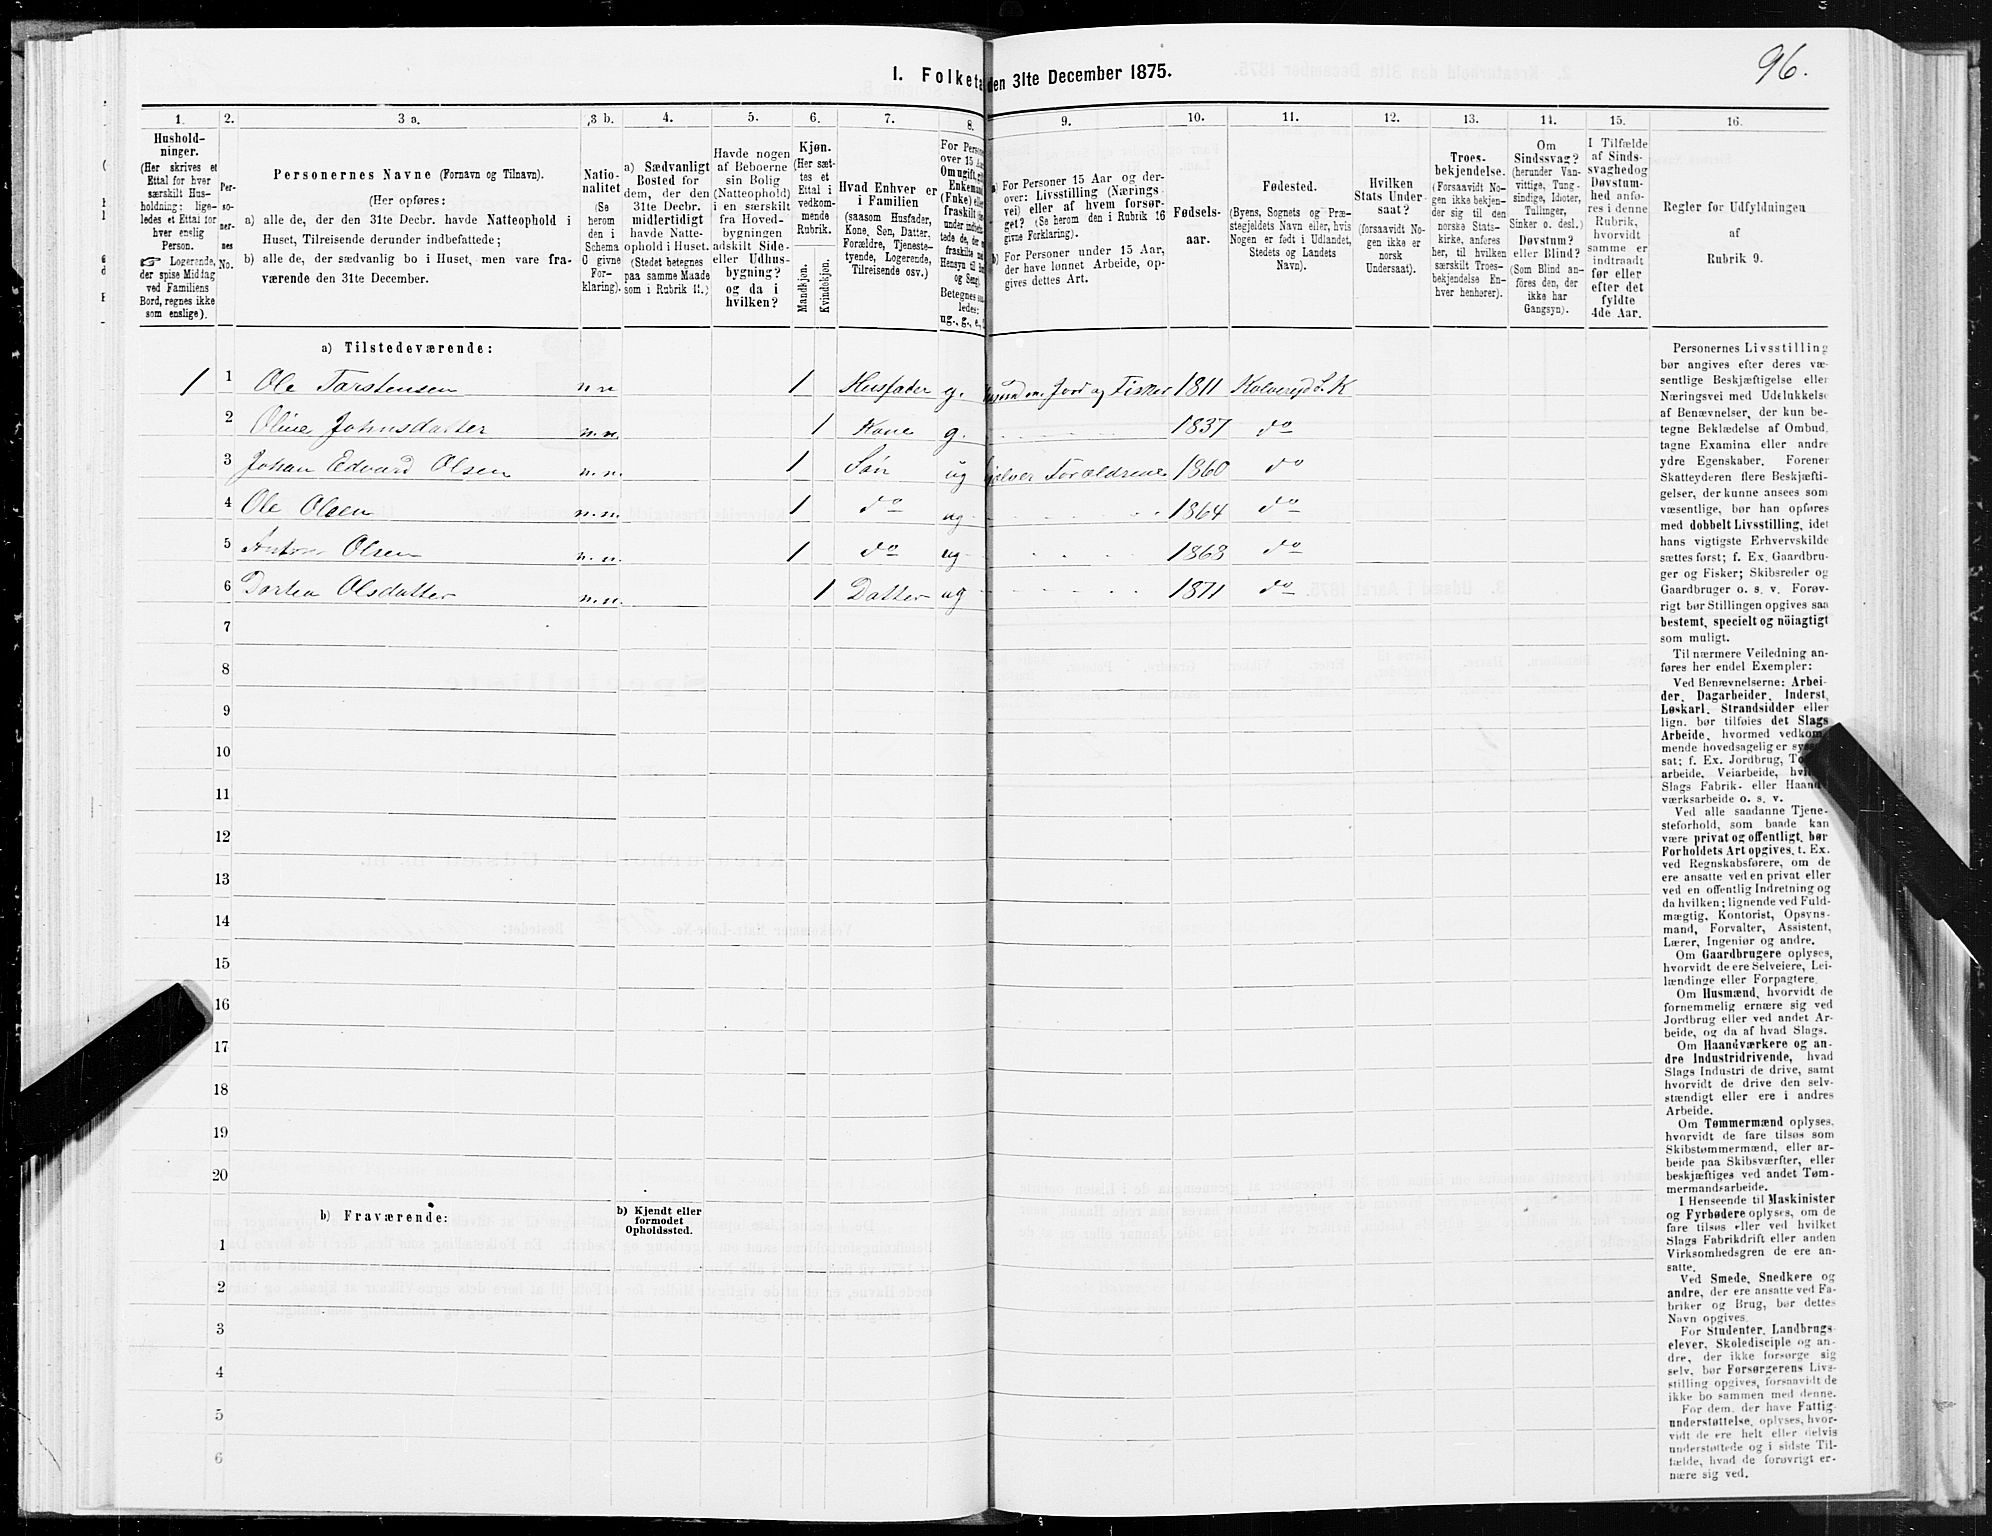 96.
I. Folketa den 31te December 1875.
1. 2. 3 a. 3 b. 4. 5. 6. 7. 8. 9. 10. 11. 12. 13. 14. 15. 16.
Hushold-
ninger.
(Her skrives et
Ettal for hver
særskilt Hus-
holdning; lige-
ledes et Ettal for
hver enslig
Person.
☞ Logerende,
der spise Middag
ved Familiens
Bord, regnes ikke
som enslige).
Per-
so-
ner-
nes
No.
Personernes Navne (Fornavn og Tilnavn).
(Her opføres:
a) alle de, der den 31te Decbr. havde Natteophold i
Huset, Tilreisende derunder indbefattede;
b) alle de, der sædvanlig bo i Huset, men vare fra-
værende den 31te December.
Natio-
nalitet
(Se
herom
den i
Schema
C givne
For-
klaring).
a) Sædvanligt
Bosted for
dem, der den
31te Decbr.
midlertidigt
havde Natte-
ophold i Huset.
(Stedet betegnes
paa samme Maade
som i Rubrik 11.)
Havde nogen
af Beboerne
sin Bolig
(Natteophold)
i en særskilt
fra Hoved-
bygningen
adskilt Side-
eller Udhus-
bygning?
og da i
hvilken?
Kjøn.
(Her sæt-
tes et
Ettal i
vedkom-
mende
Rubrik.
Mandkjøn.
Kvindekjøn.
Hvad Enhver er
i Familien
(saasom Husfader,
Kone, Søn, Datter,
Forældre, Tjeneste-
tyende, Logerende,
Tilreisende osv.)
For Person
over 15 Aa
Om ugift, gi
Enkemand
(Fnke) elle
fraskilt
Betegnes saa
ledes:
ug., g., e.,
a) For Personer 15 Aar og der-
over: Livsstilling (Nærings
vei) eller af hvem forsør-
get? (Se herom den i Rubrik 16
givne Forklaring).
b) For Personer under 15 Aar,
der have lønnet Arbeide, op-
gives dettes Art.
Fødsels-
aar.
Fødested.
(Byens, Sognets og Præ-
stegjeldets Navn eller, hvis
Nogen er født i Udlandet,
Stedets og Landets
Navn).
Hvilken
Stats Under-
saat?
(forsaavidt No-
gen ikke er
norsk
Undersaat).
Troes-
bekjendelse.
(Forsaavidt No-
gen ikke bekjen-
der sig til den
norske Stats-
kirke, anføres
her, til hvilken
særskilt Troes-
bekjendelse En-
hver henhører).
Om
Sindssvag?
(herunder Van-
vittige, Tung-
sindige, Idioter,
Tullinger,
Sinker o. desl.)
Døvstum?
eller Blind?
(Som Blind an-
føres den, der
ikke har
Gangsyn).
I Tilfælde
af Sinds-
svaghed og
Døvstum-
hed anfø-
res i denne
Rubrik,
hvorvidt
samme er
indtraadt
før eller
efter det
fyldte
4de Aar.
Regler for Udfyldningen
af
Rubrik 9.
a) Tilstedeværende:
1 1 Ole Torstensen n.n 1 Husfader g. m. Jord og Fisker 1811 Kolvereid S. K
2 Oline Johnsdatter n.n. 1 Kone g. 1837 do
3 Johan Edvard Olsen n.n. 1 Søn ug Forældrene 1860 do
4 Ole Olsen n.n. 1 do ug 1864 do
5 Anton Olsen n.n. 1 do ug 1868 do
6 Dortea Olsdatter n.n. 1 Datter ug 1871 do
7
8
9
10
11
12
13
14
15
16
17
18
19
20
b) Fraværende:
b) Kjendt eller
formodet
Opholdssted.
1
2
3
4
5
6
Personernes Livsstilling
bør angives efter deres væ-
sentlige Beskjæftigelse eller
Næringsvei med Udelukkelse
af Benævnelser, der kun be-
tegne Beklædelse af Ombud,
tagne Examina eller andre
ydre Egenskaber. Forener
Skatteyderen flere Beskjæfti-
gelser, der kunne ansees som
væsentlige, bør han opføres
med dobbelt Livsstilling, idet
hans vigtigste Erhvervskilde
sættes først; f. Ex. Gaardbru-
ger og Fisker; Skibsreder og
Gaardbruger o. s. v. Forøv-
rigt bør Stillingen opgives saa
bestemt, specielt og nöiagtigt
som muligt.
Til nærmere Veiledning an-
føres her endel Exempler:
Ved Benævnelserne: Arbei-
der, Dagarbeider, Inderst,
Løskarl, Strandsidder eller
lign. bør tilføies det Slags
Arbeide, hvormed vedkom-
mende hovedsagelig er syssel
sat; f. Ex. Jordbrug, To
arbeide, Veiarbeide, hvil
Slags Fabrik- eller Haand-
værksarbeide o. s. v.
Ved alle saadanne Tjene-
steforhold, som baade kan
være privat og offentligt, bør
Forholdets Art opgives, t. Ex.
ved Regnskabsførere, om de
ere ansatte ved en privat eller
ved en offentlig Indretning og
da hvilken; lignende ved Fuld-
mægtig, Kontorist, Opsyns-
mand, Forvalter, Assistent,
Lærer, Ingeniør og andre.
Om Gaardbrugere oplyses,
hvorvidt de ere Selveiere, Lei-
lændinge eller Forpagtere.
Om Husmænd, hvorvidt de
fornemmelig ernære sig ved
Jordbrug eller ved andet Ar-
beide, og da af hvad Slags.
Om Haandværkere og an-
dre Industridrivende, hvad
Slags Industri de drive, samt
hvorvidt de drive den selv-
stændigt eller ere i andres
Arbeide.
Om Tømmermænd oplyses,
hvorvidt de fare tilsøs som
Skibstømmermænd, eller ar-
beide paa Skibsværfter, eller
beskjæftiges ved andet Tøm-
mermandsarbeide.
I Henseende til Maskinister
og Fyrbødere oplyses, om de
fare tilsøs eller ved hvilket
Slags Fabrikdrift eller anden
Virksomhedsgren de ere an-
satte.
Ved Smede, Snedkere og
andre, der ere ansatte ved Fa-
briker og Brug, bør dettes
Navn opgives.
For Studenter, Landbrugs-
elever, Skoledisciple og an-
dre, der ikke forsørge sig
selv, bør Forsørgerens Livs-
stilling opgives, forsaavidt de
ikke bo sammen med denne.
For dem, der have Fattig-
understøttelse, oplyses, hvor-
vidt de ere helt eller delvis
understøttede og i sidste Til-
fælde, hvad de forøvrigt er-
nære sig ved.